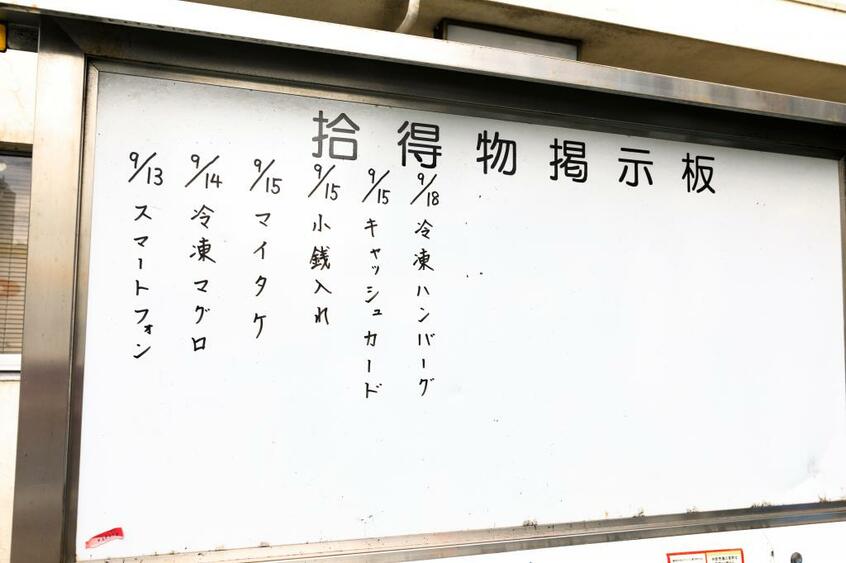 拾得物掲示板
9/13 スマートフォン
9/14 冷凍マグロ
9/15 マイタケ
9/15 小銭入れ
9/15 キャッシュカード
9/18 冷凍ハンバーグ